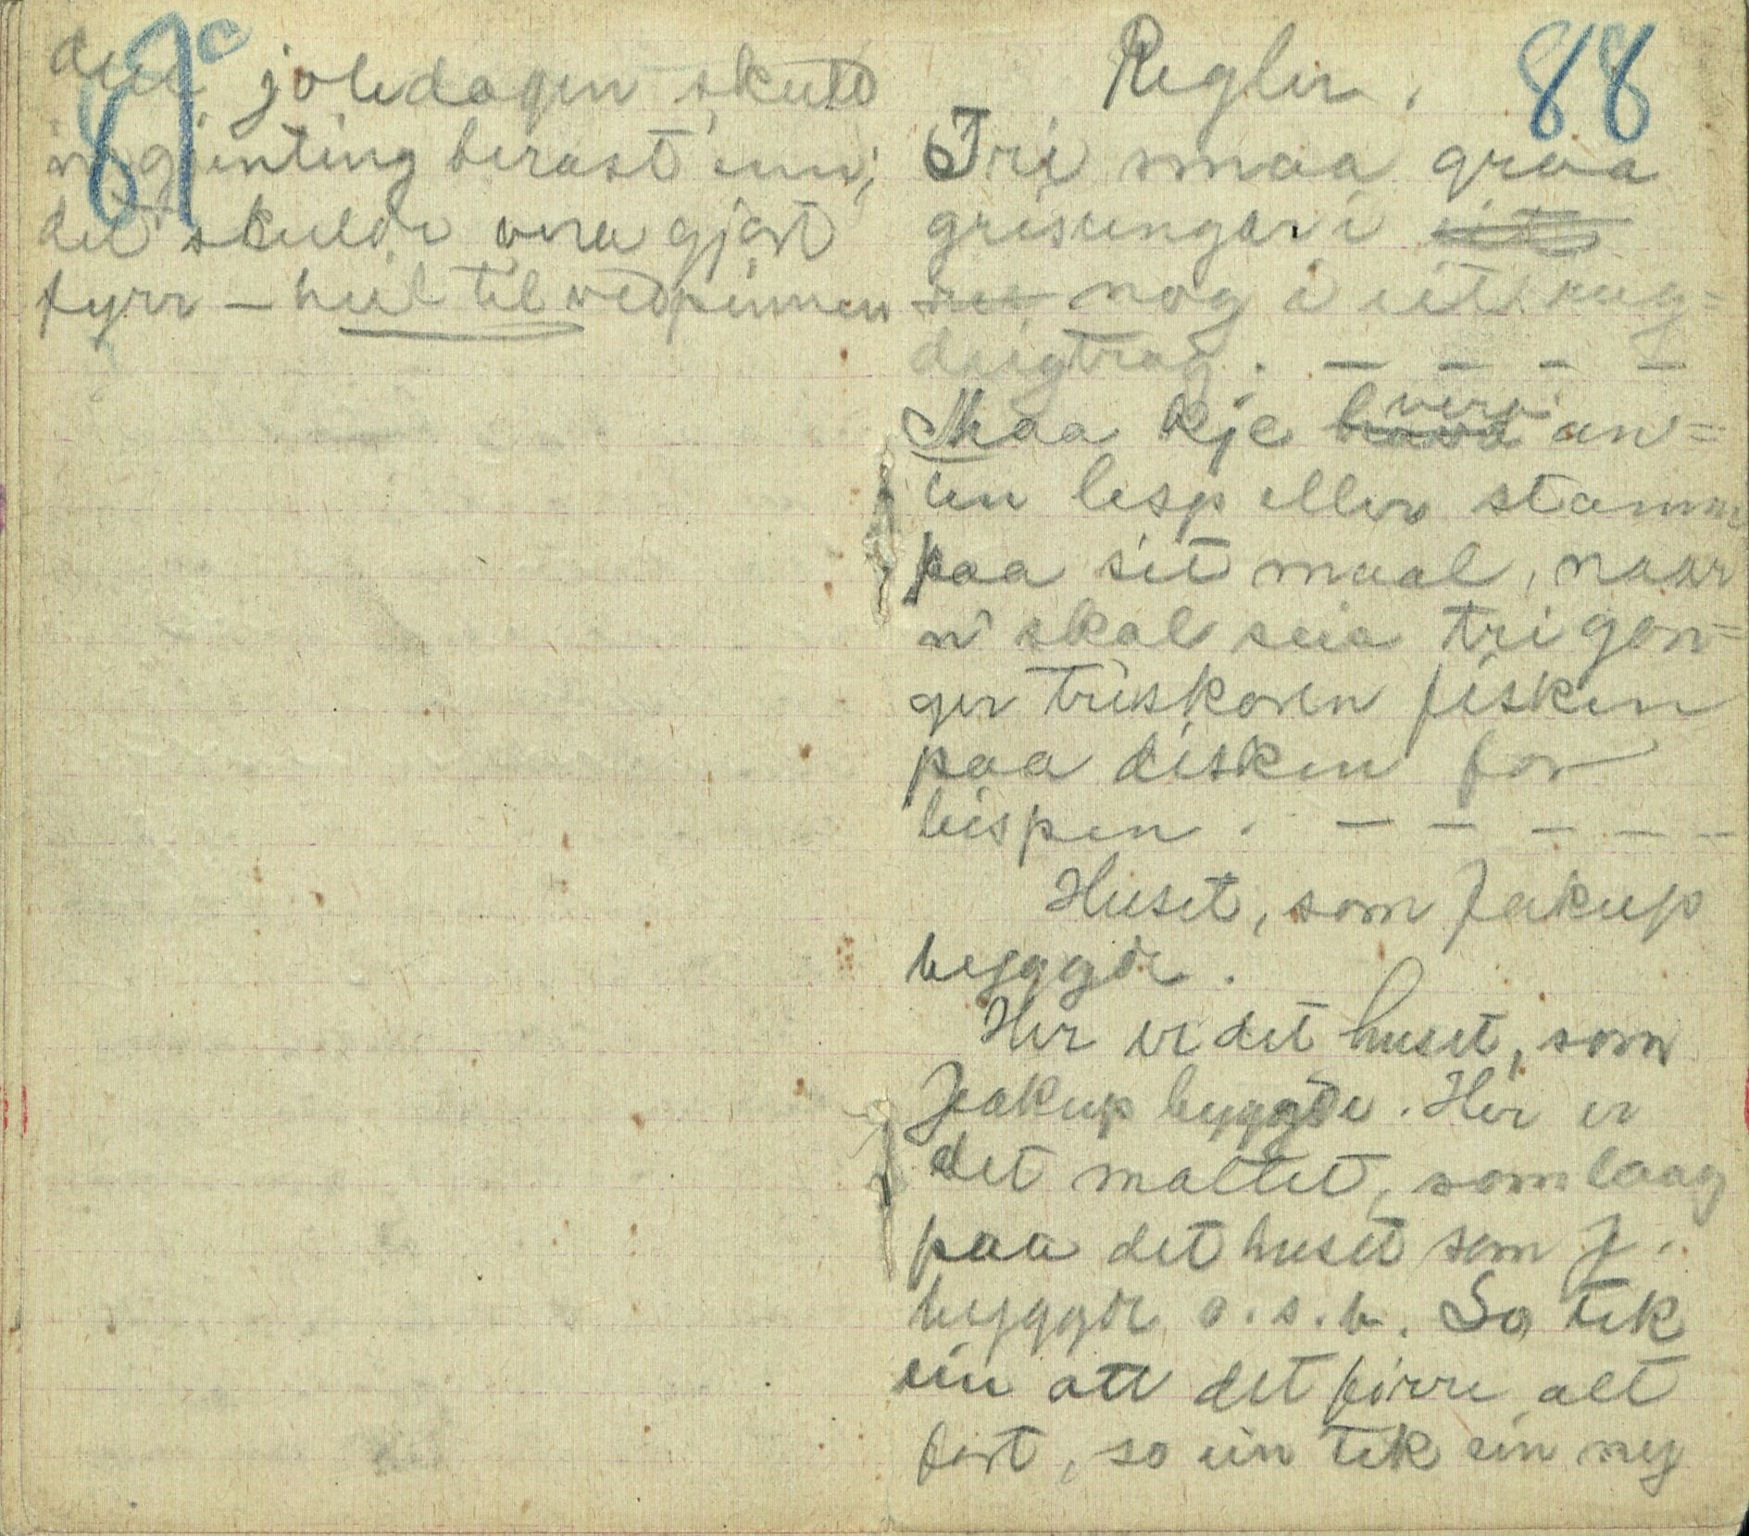 87c
den joledagen skuld
ingjenting berast inn;
det skulde vera gjort
fyrr – heil til vedpinnen
88
Regler.
Tri smaa graa
grisungar i
nog i eit rug=
deigtrog. – – – –
Maa kje vera an=
ten lesp eller stam
paa sit maal, naar
n' skal seia tri gon=
ger treskoren fisken
paa disken for
bispen. – – – – –
Huset, som Jakup
byggde.
Her er det huset, som
Jakup byggde. Her er
det maltet, som laag
paa det huset som J.
byggde o.s.b. So tek
ein att det förre alt
fort, so ein tek ein ny